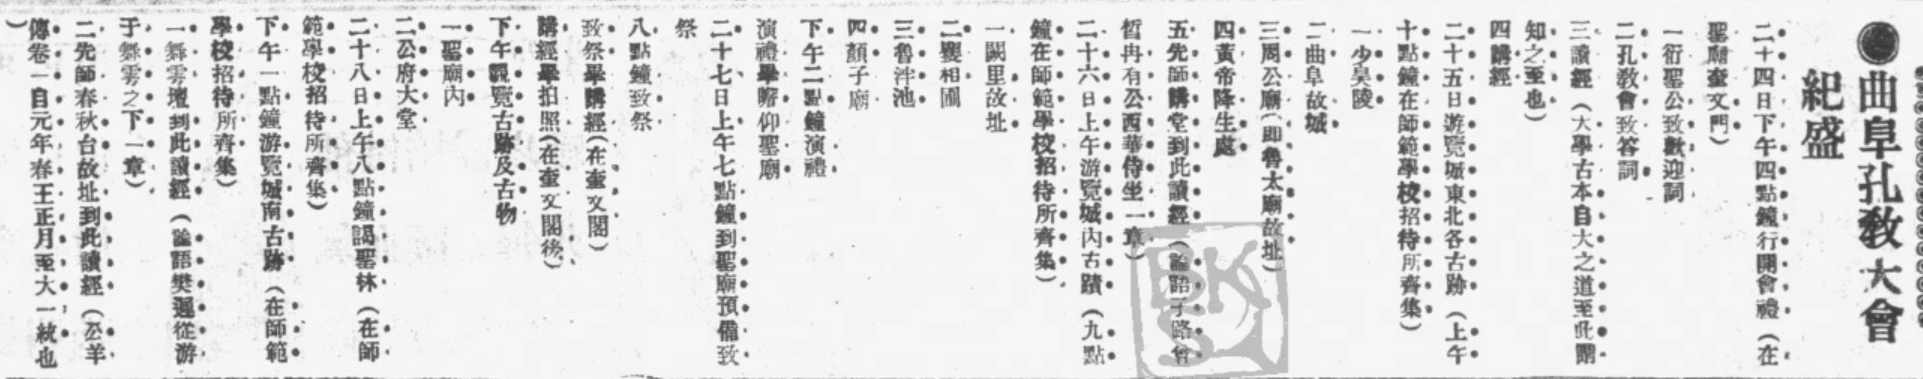 ●曲阜孔敎大會
紀盛
二十四日下午四點鐘行開會禮（在
聖廟奎文門）
一衍聖公致歡迎詞
二孔敎會致答詞
三讀經（大學古本自大之道至此謂
知之至也）
四講經
二十五日游覽城東北各古跡（上午
十點鐘在師範學校招待所齊集）
一少昊陵
二曲阜故城
三周公廟（即魯太廟故址）
四黃帝降生處
五先師講堂到此讀經（論語子路曾
晳冉有公西華侍坐一章）
二十六日上午游覽城內古蹟（九點
鐘在師範學校招待所齊集）
一闕里故址
二矍相圃
三魯泮池
四顏子廟
下午二點鐘演禮
演禮畢瞻仰聖廟
二十七日上午七點鐘到聖廟預備致
祭
八點鐘致祭
致祭畢講經（在奎文閣）
講經畢拍照（在奎文閣後）
下午觀覽古跡及古物
一聖廟內
二公府大堂
二十八日上午八點鐘謁聖林（在師
範學校招待所齊集）
下午一點鐘游覽城南古跡（在師範
學校招待所齊集）
一舞雩壇到此讀經（論語樊遲從游
于舞雩之下一章）
二先師春秋台故址到此讀經（公羊
傳卷一自元年春王正月至大一統也
）
BKS